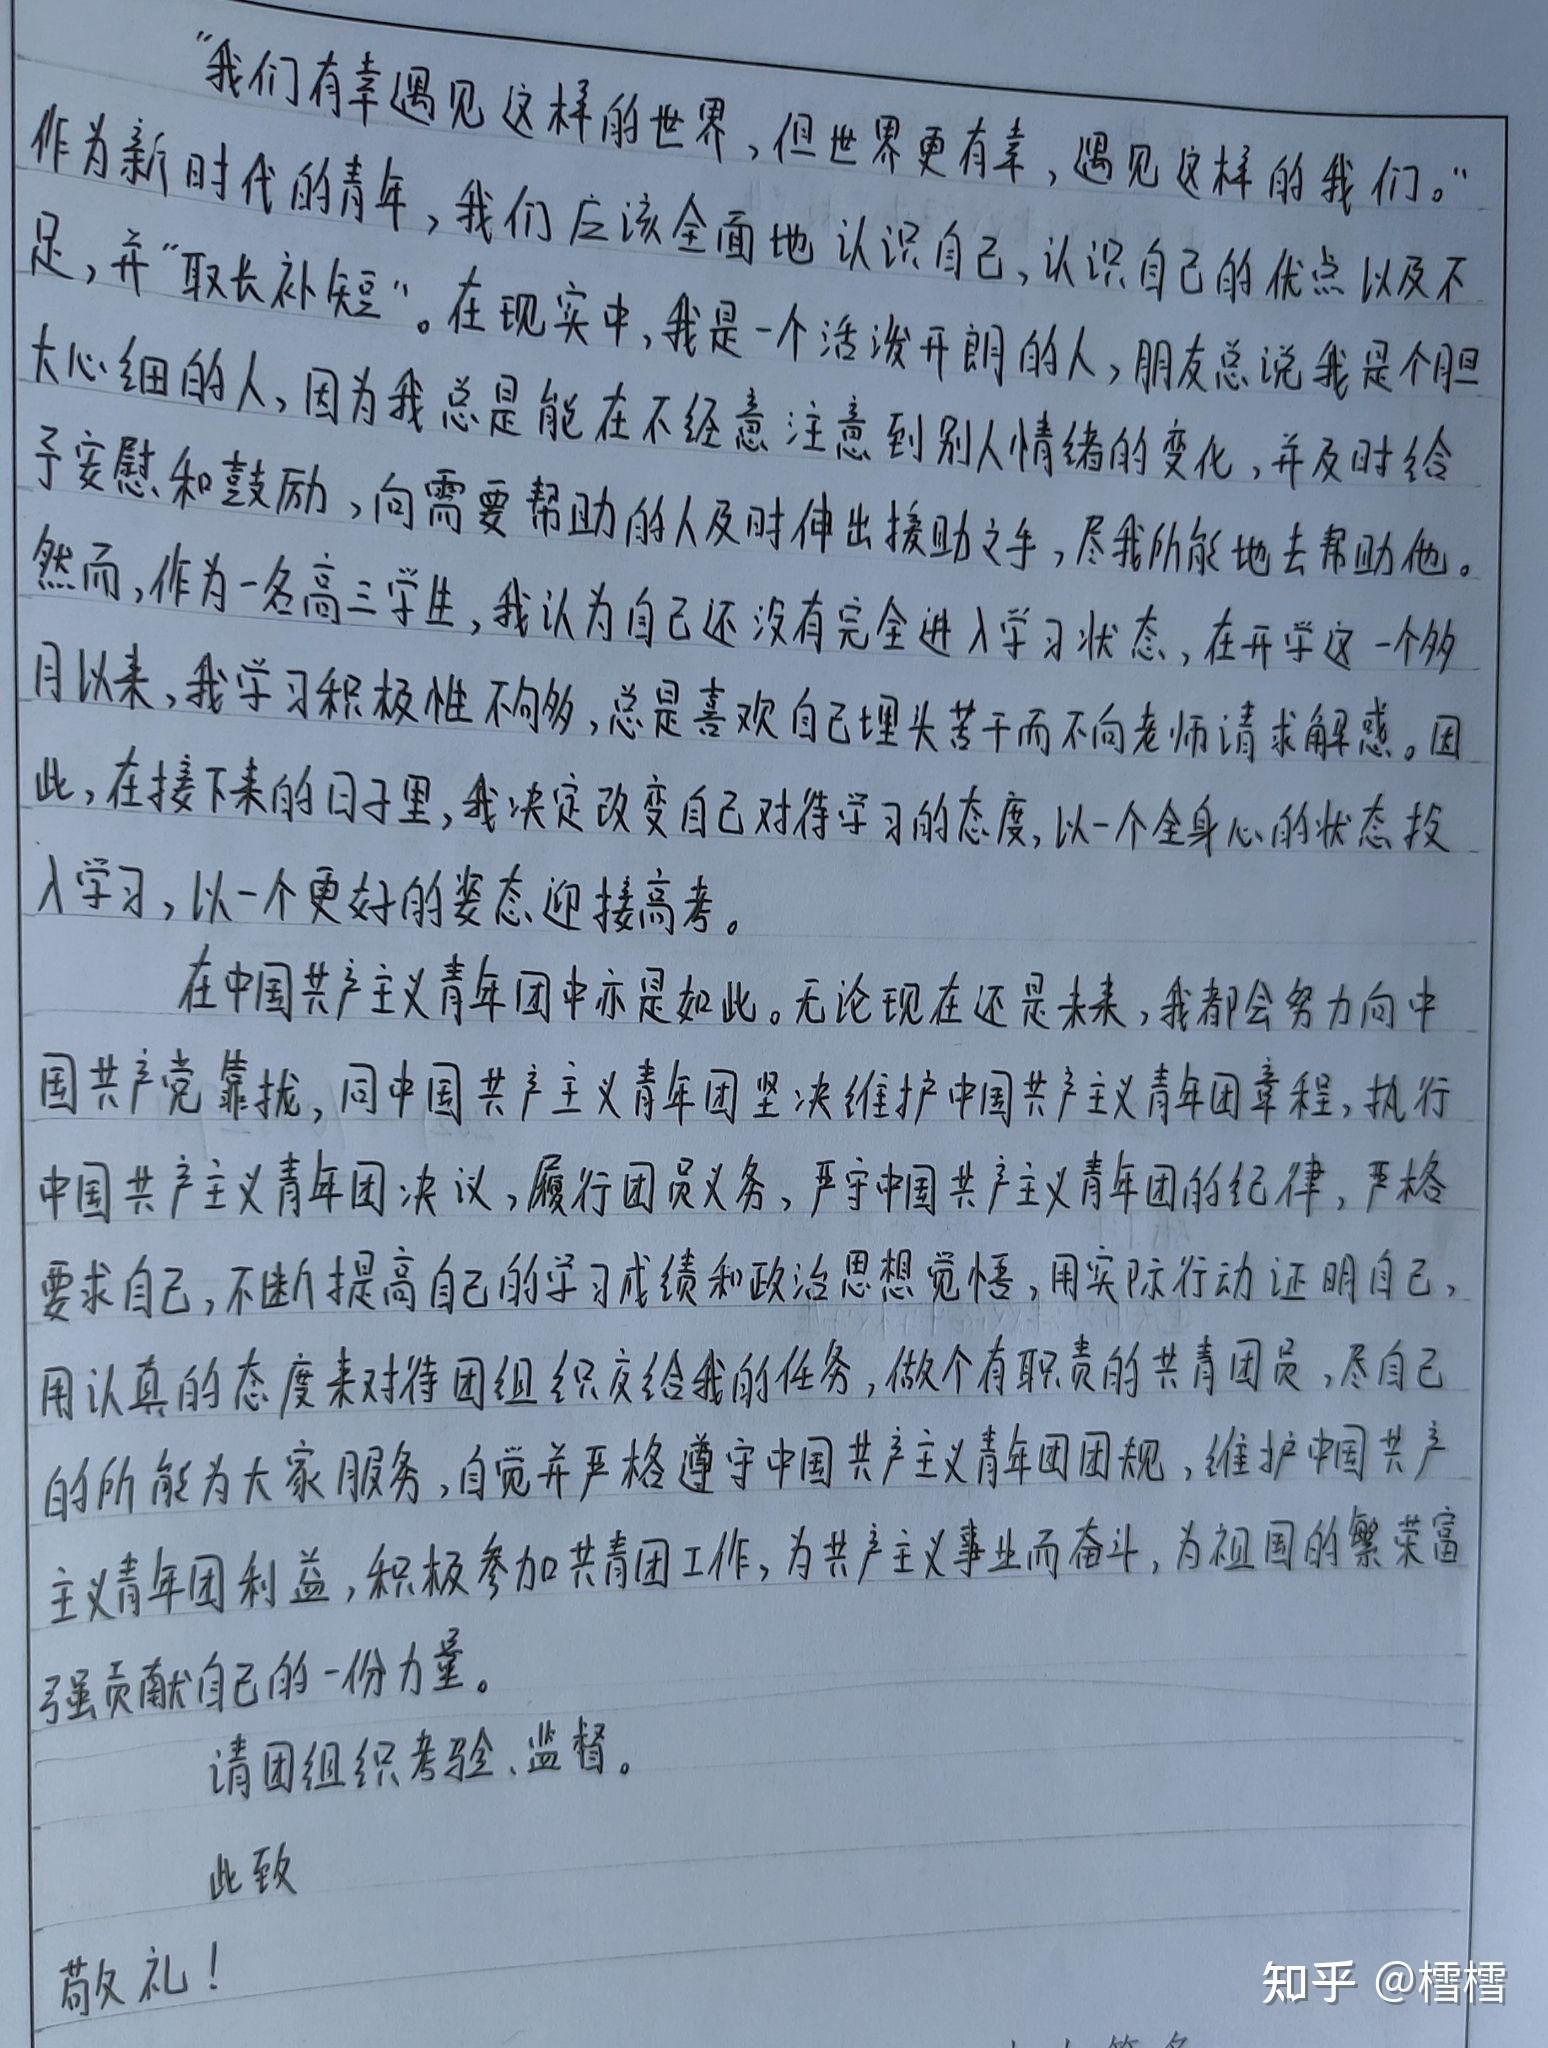 “我们有幸遇见这样的世界，但世界更有幸，遇见这样的我们。”
作为新时代的青年，我们应该全面地认识自己，认识自己的优点以及不
足，并“取长补短”。在现实中，我是一个活泼开朗的人，朋友总说我是个胆
大心细的人，因为我总是能在不经意注意到别人情绪的变化，并及时给
予安慰和鼓励，向需要帮助的人及时伸出援助之手，尽我所能地去帮助他。
然而，作为一名高三学生，我认为自己还没有完全进入学习状态，在开学这一个多
月以来，我学习积极性不够，总是喜欢自己埋头苦干而不向老师请求解惑。因
此，在接下来的日子里，我决定改变自己对待学习的态度，以一个全身心的状态投
入学习，以一个更好的姿态迎接高考。
在中国共产主义青年团中亦是如此。无论现在还是未来，我都会努力向中
国共产党靠拢，同中国共产主义青年团坚决维护中国共产主义青年团章程，执行
中国共产主义青年团决议，履行团员义务，严守中国共产主义青年团的纪律，严格
要求自己，不断提高自己的学习成绩和政治思想觉悟，用实际行动证明自己，
用认真的态度来对待团组织交给我的任务，做个有职责的共青团员，尽自己
的所能为大家服务，自觉并严格遵守中国共产主义青年团团规，维护中国共产
主义青年团利益，积极参加共青团工作，为共产主义事业而奋斗，为祖国的繁荣富
强贡献自己的一份力量。
请团组织考验、监督。
此致
敬礼！
知乎 @樰樰